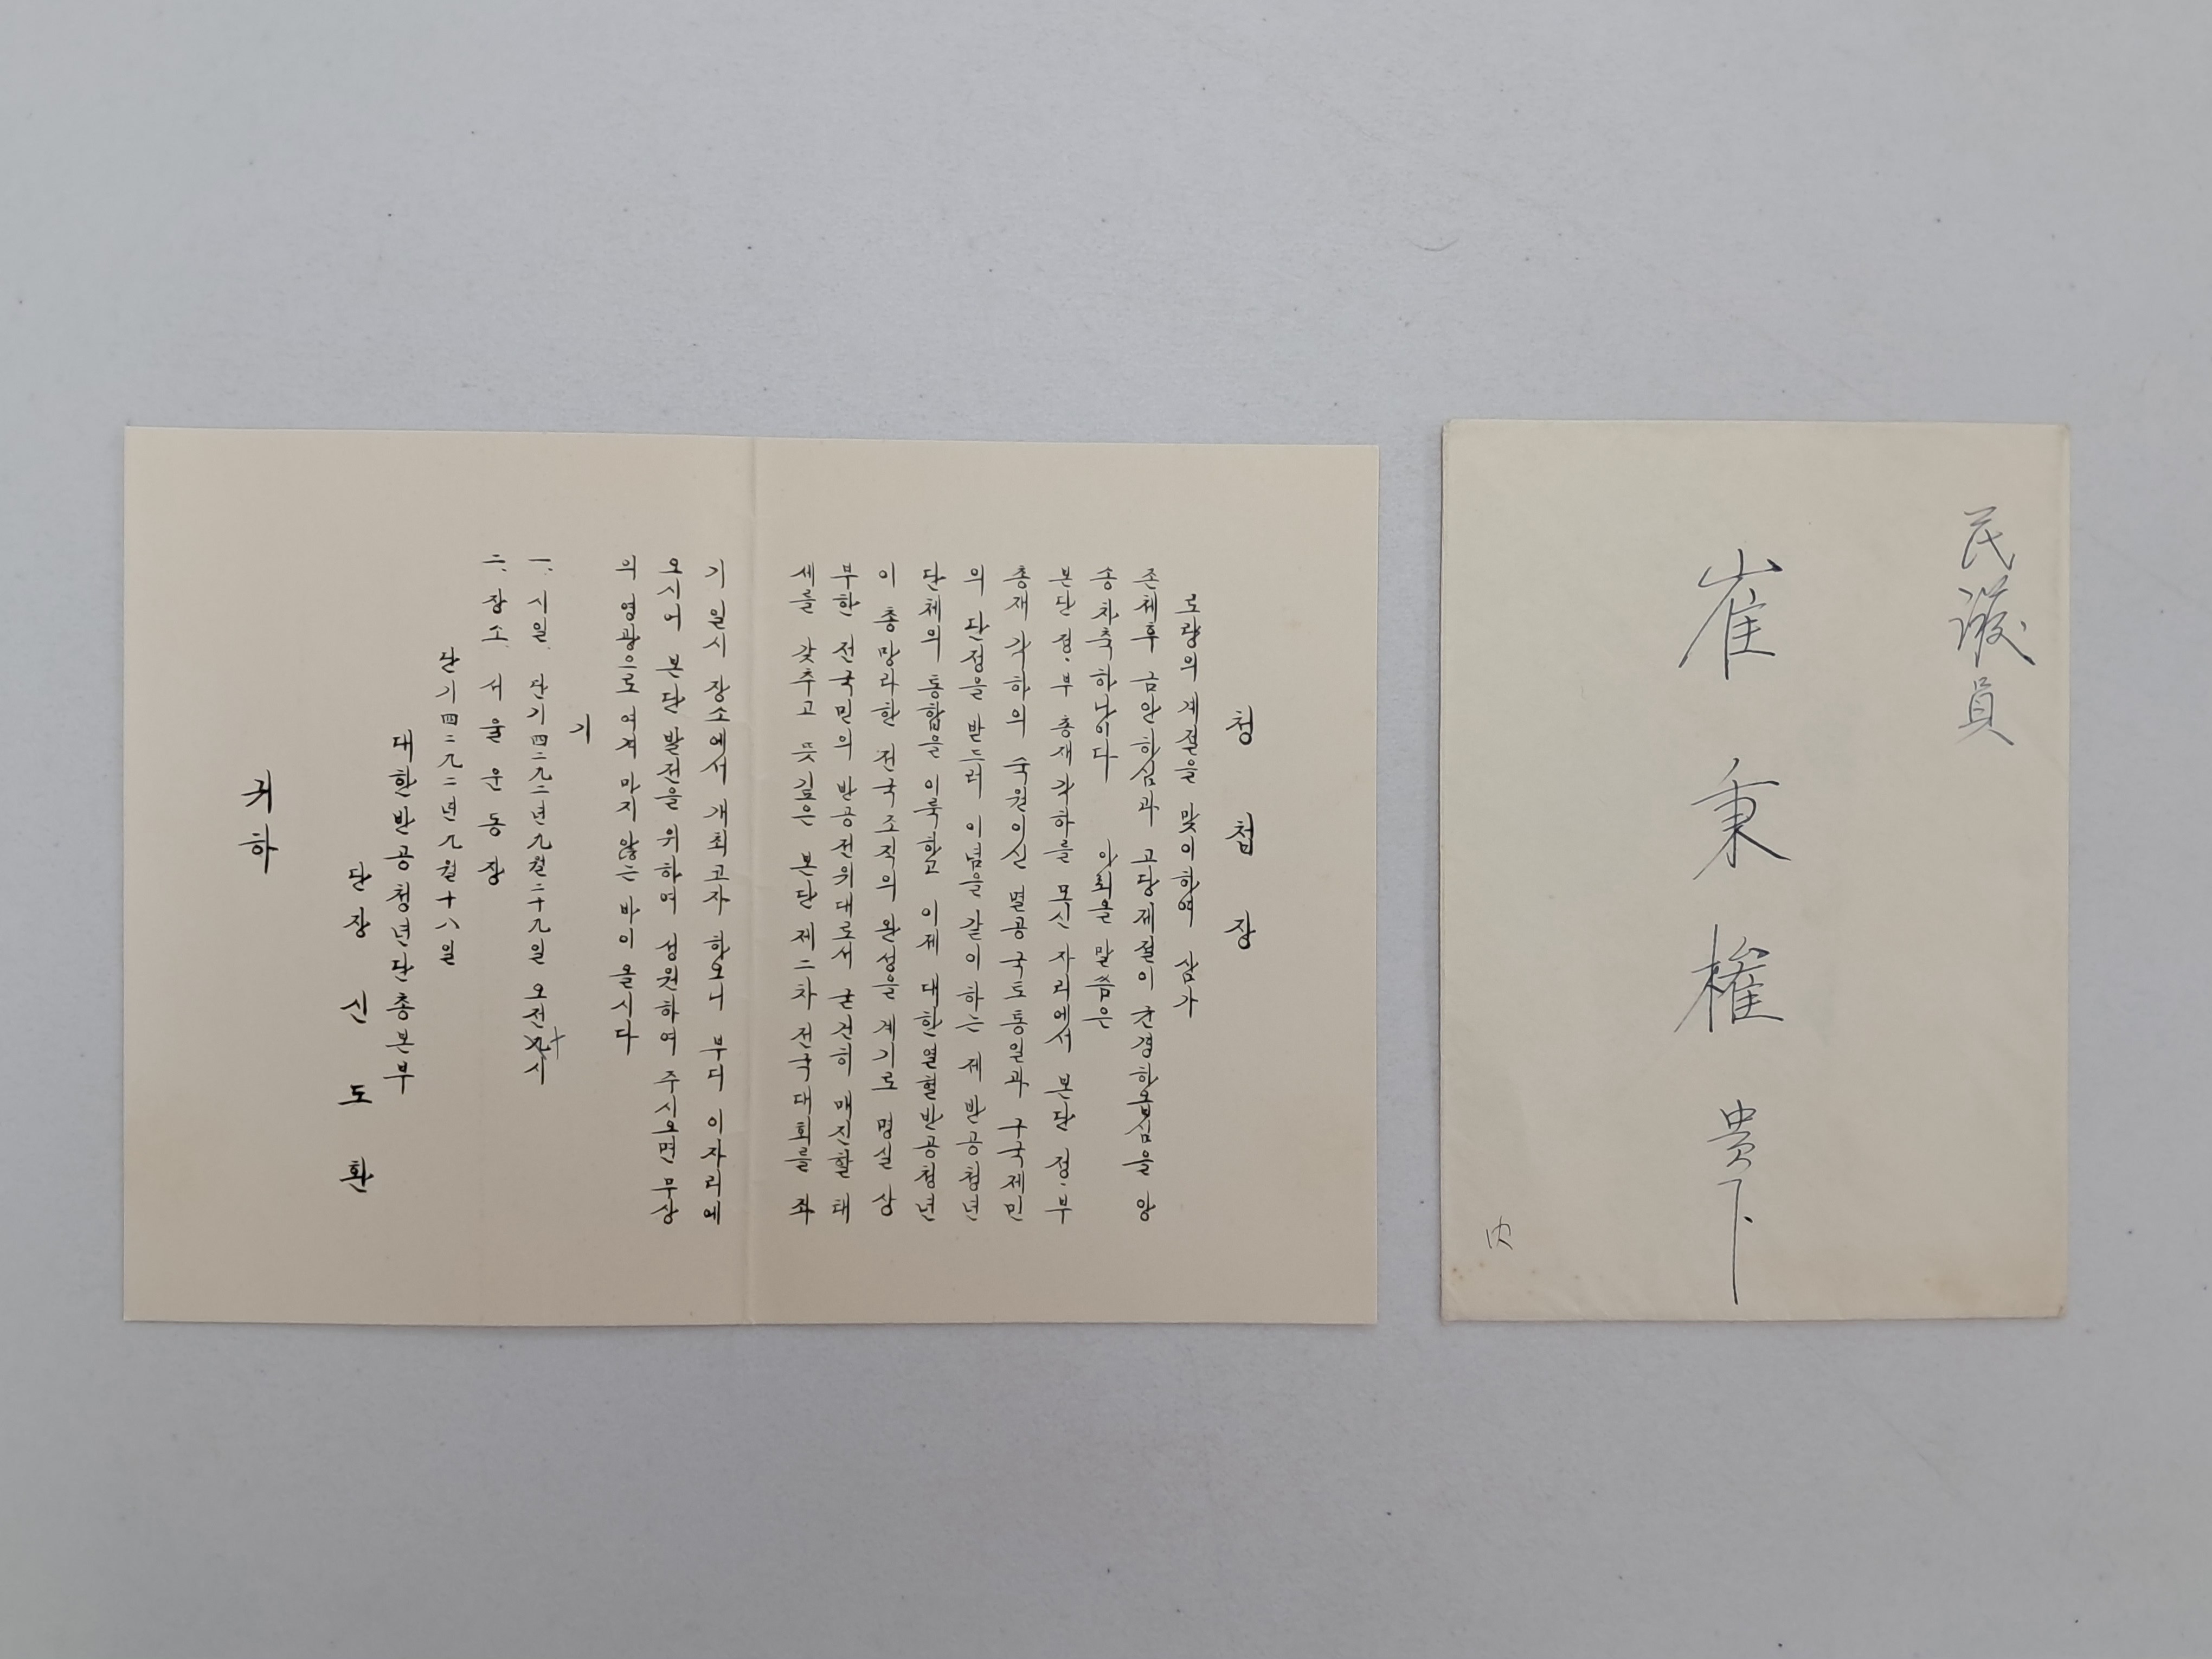 民議員
崔秉權 貴下
内
청첩장
로량의 계절을 맞이하여 삼가
존체후 금안하심과 고당제절이 균경하옵심을 앙
송차축하나이다 아뢰올 말씀은
본단 정·부 총재각하를 모신 자리에서 본단 정·부
총재 각하의 숙원이신 멸공 국토통일과 구국제민
의 단정을 받드러 이념을 같이하는 제 반공청년
단체의 통합을 이룩하고 이제 대한열혈반공청년
이 총망라한 전국조직의 완성을 계기로 명실 상
부한 전국민의 반공전위대로서 굳건히 매진할 태
세를 갖추고 뜻깊은 본단 제二차 전국대회를 좌
기 일시 장소에서 개최고자 하오니 부디 이자리에
오시어 본단 발전을 위하여 성원하여 주시오면 무상
의 영광으로 여겨 마지 않는 바이올시다
기
一. 시일. 단기四二九二년九월二十九일 오전九十시
二. 장소. 서울운동장
단기四二九二년九월十八일
대한반공청년단총본부
단장 신도환
귀하